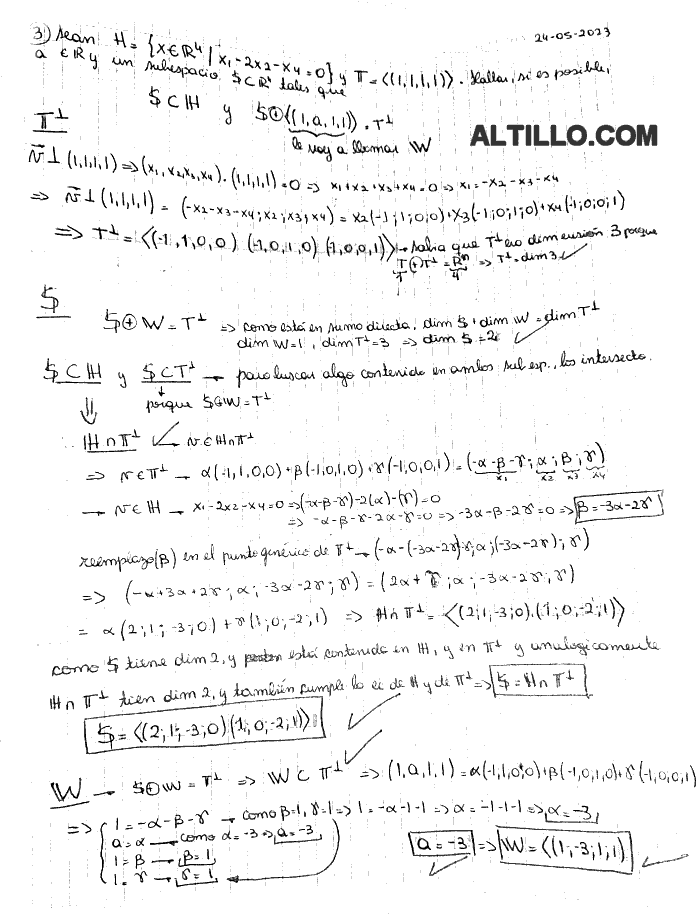 24-05-2023
3) Sean H = {x∈ℝ⁴ | x₁-2x₂-x₄=0} y T = <(1,1,1,1)>. Hallar, si es posible,
a ∈ℝ y un subespacio $⊂ℝ⁴ tales que
$⊂H y $⊕<(1,a,1,1)> = T⊥
lo voy a llamar W
ALTILLO.COM
T⊥
v⊥(1,1,1,1) => (x₁,x₂,x₃,x₄).(1,1,1,1)=0 => x₁+x₂+x₃+x₄=0 => x₁=-x₂-x₃-x₄
=> v⊥(1,1,1,1) = (-x₂-x₃-x₄; x₂; x₃; x₄) = x₂(-1;1;0;0)+x₃(-1;0;1;0)+x₄(-1;0;0;1)
=> T⊥ = <(-1,1,0,0) (-1,0,1,0) (-1,0,0,1)> → sabia que T⊥ era dimensión 3 porque
T⊕T⊥ = ℝⁿ => T⊥=dim3 ✓
1 4
$
$⊕W = T⊥ => como está en suma directa, dim $ + dim W = dim T⊥
dim W=1, dim T⊥=3 => dim $=2 ✓
$⊂H y $⊂T⊥ → para buscar algo contenido en ambos sub esp., los intersecto.
porque $⊕W=T⊥
H∩T⊥ ← v∈H∩T⊥
=> v∈T⊥ → α(-1,1,0,0)+β(-1,0,1,0)+γ(-1,0,0,1)=(-α-β-γ; α; β; γ)
x₁ x₂ x₃ x₄
→ v∈H → x₁-2x₂-x₄=0 => (-α-β-γ)-2(α)-(γ)=0
=> -α-β-γ-2α-γ=0 => -3α-β-2γ=0 => β=-3α-2γ
reemplazo(β) en el punto genérico de T⊥ → (-α-(-3α-2γ)-γ; α; (-3α-2γ); γ)
=> (-α+3α+2γ; α; -3α-2γ; γ) = (2α+γ; α; -3α-2γ; γ)
= α(2;1;-3;0)+γ(1;0;-2;1) => H∩T⊥ = <(2;1;-3;0).(1;0;-2;1)>
como $ tiene dim 2, y está contenido en H, y en T⊥ y analogicamente
H∩T⊥ tien dim 2, y también cumple la ec de H y de T⊥ => $=H∩T⊥
$=<(2;1;-3;0)(1;0;-2;1)> ✓
W → $⊕W=T⊥ => W⊂T⊥ => (1,a,1,1)=α(-1,1,0,0)+β(-1,0,1,0)+γ(-1,0,0,1)
=> { 1=-α-β-γ → como β=1, γ=1 => 1=-α-1-1 => α=-1-1-1 => α=-3
a=α → como α=-3 => a=-3
1=β → β=1
1=γ → γ=1
a=-3 => W=<(1;-3;1;1)> ✓